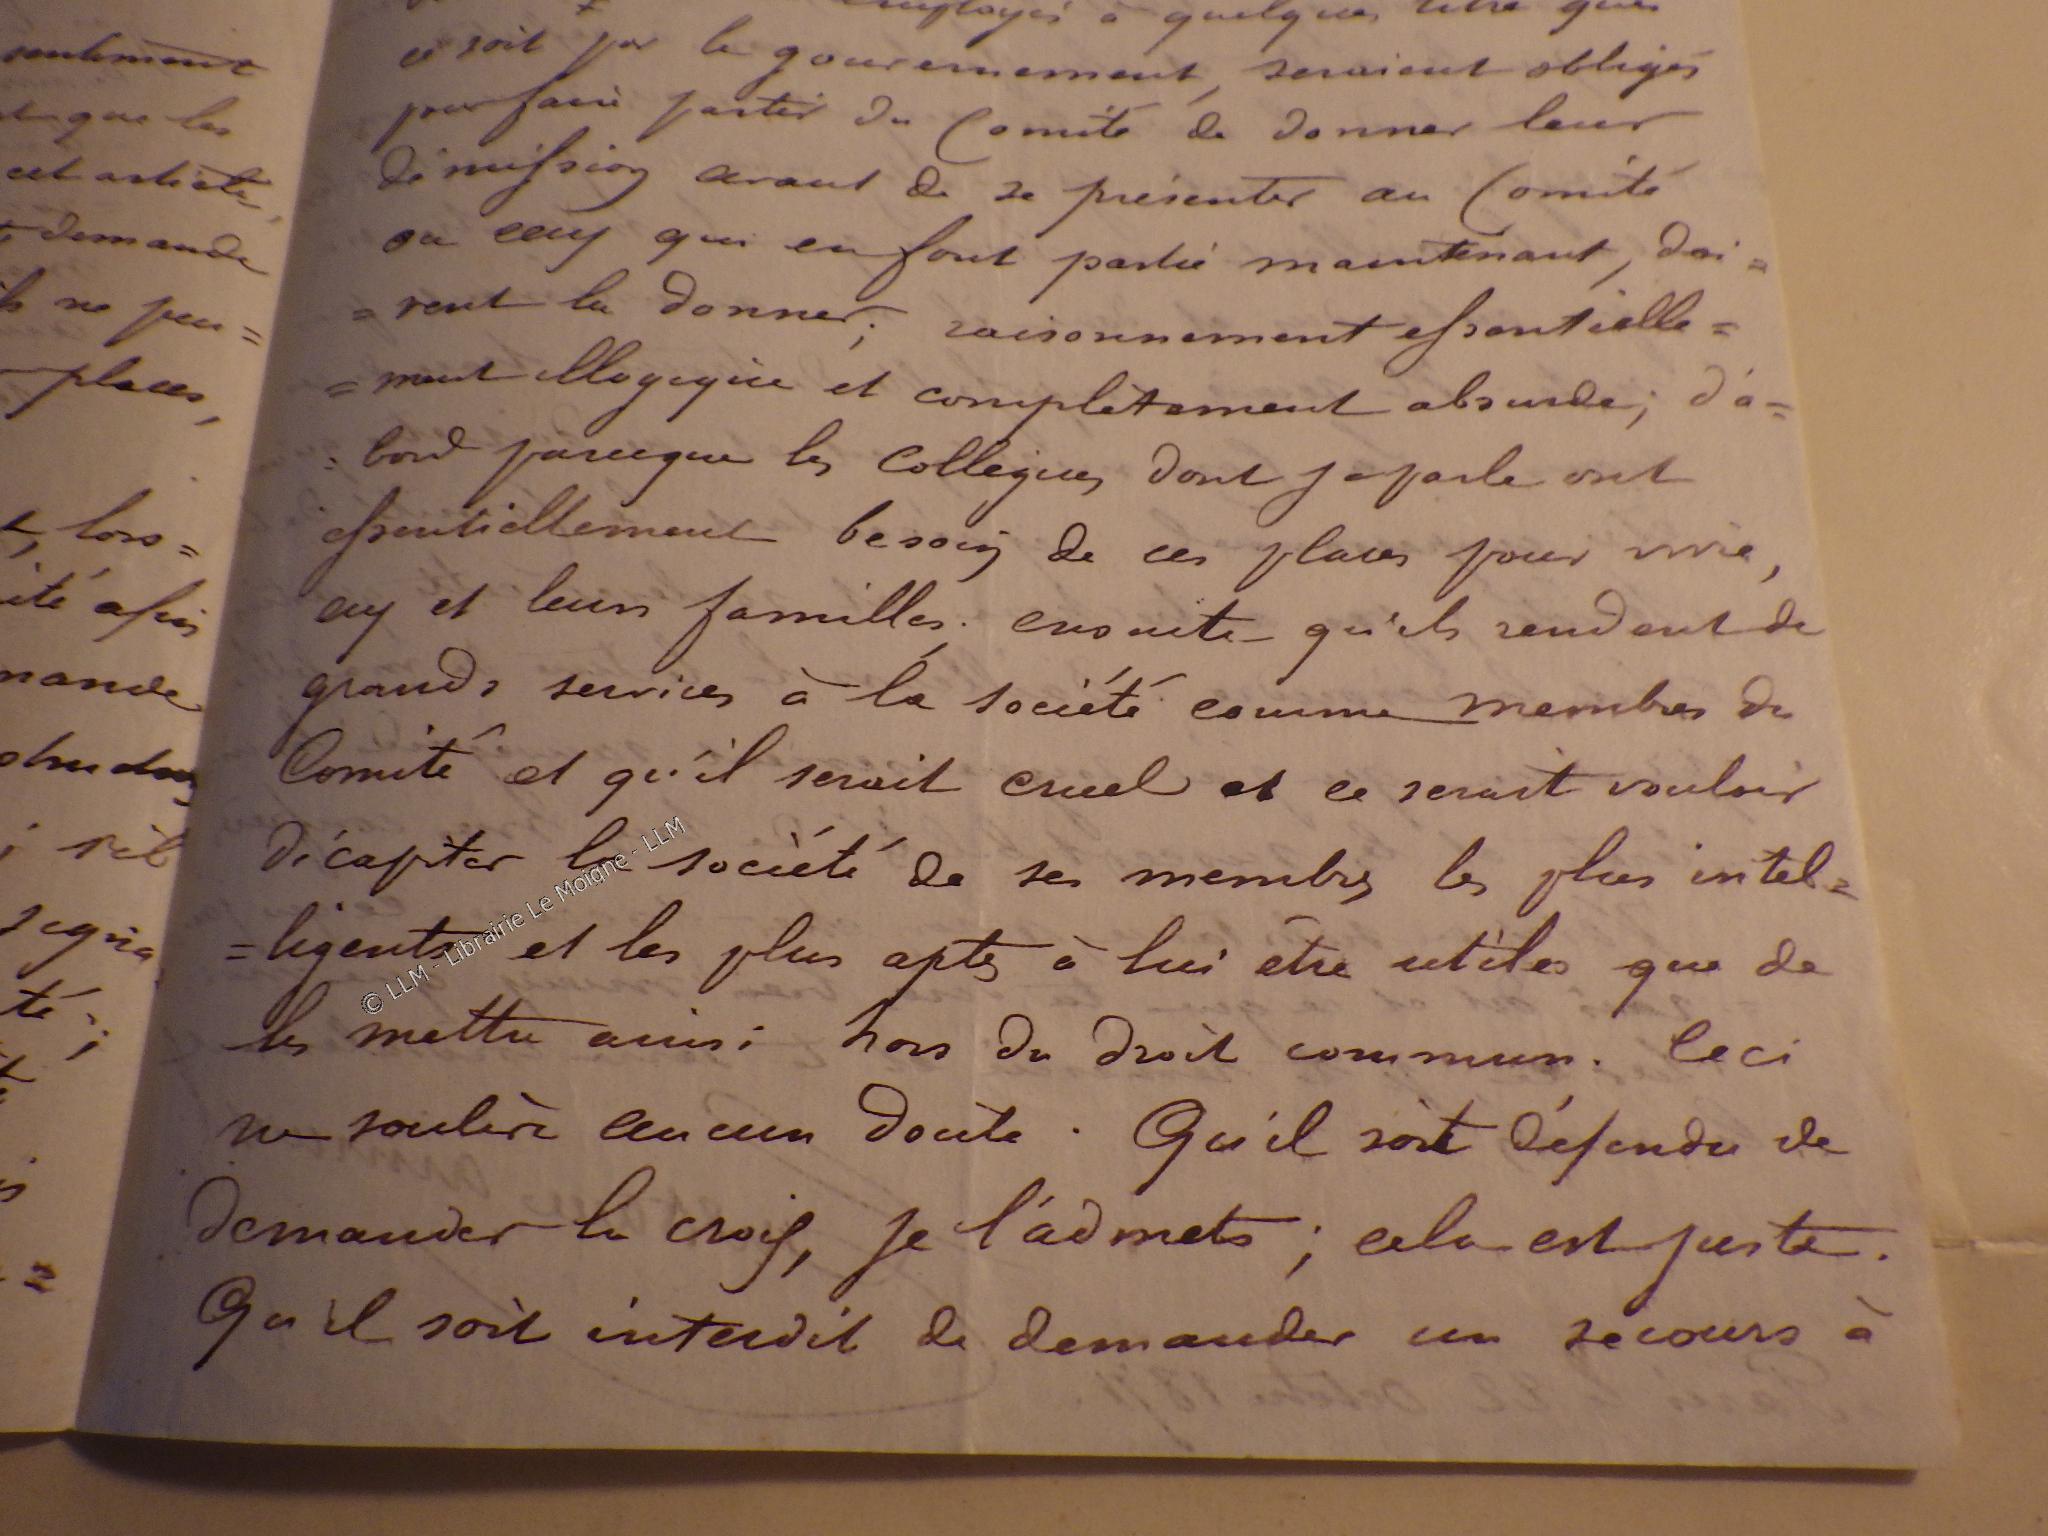 sentiment
que les
cet artiste,
demande
ne peu=
places,
lors=
ité afin
mande
signa
té;
employés à quelques titre que
ce soit par le gouvernement, seraient obligés
pour faire partie du Comité de donner leur
démission avant de se présenter au Comité
ou ceux qui en font partie maintenant, doi=
=vent la donner; raisonnement essentielle=
=ment illogique et complètement absurde; d'a=
=bord parceque les Collègues dont je parle ont
essentiellement besoin de ces places pour vivre,
eux et leurs familles. ensuite qu'ils rendent de
grands services à la société comme membres du
Comité et qu'il serait cruel et ce serait vouloir
décapiter la société de ses membres les plus intel=
=ligents et les plus aptes à lui être utiles que de
les mettre ainsi hors du droit commun. Ceci
ne soulève aucun doute. Qu'il soit défendu de
demander la croix, je l'admets; cela est juste.
Qu'il soit interdit de demander un secours à
© LLM - Librairie Le Moigne - LLM